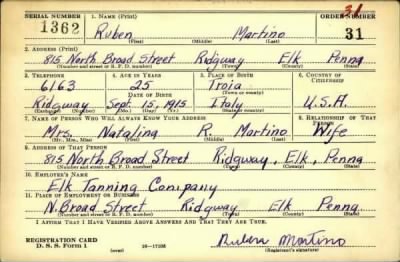 SERIAL NUMBER 1. NAME (Print) ORDER NUMBER
31
1362 Ruben Martino 31
(First) (Middle) (Last)
2. ADDRESS (Print)
815 North Broad Street Ridgway Elk Penna
(Number and street or R. F. D. number) (Town) (County) (State)
3. TELEPHONE 4. AGE IN YEARS 5. PLACE OF BIRTH 6. COUNTRY OF CITIZENSHIP
6163 25 Troia
DATE OF BIRTH (Town or county)
Ridgway Sept. 15, 1915 Italy U.S.A.
(Exchange) (Number) (Mo.) (Day) (Yr.) (State or country)
7. NAME OF PERSON WHO WILL ALWAYS KNOW YOUR ADDRESS 8. RELATIONSHIP OF THAT PERSON
Mrs. Natalina R. Martino Wife
(Mr., Mrs., Miss) (First) (Middle) (Last)
9. ADDRESS OF THAT PERSON
815 North Broad Street Ridgway, Elk, Penna
(Number and street or R. F. D. number) (Town) (County) (State)
10. EMPLOYER'S NAME
Elk Tanning Company
11. PLACE OF EMPLOYMENT OR BUSINESS
N. Broad Street Ridgway Elk Penna
(Number and street or R. F. D. number) (Town) (County) (State)
I AFFIRM THAT I HAVE VERIFIED ABOVE ANSWERS AND THAT THEY ARE TRUE.
REGISTRATION CARD
D. S. S. Form 1 (over) Martino